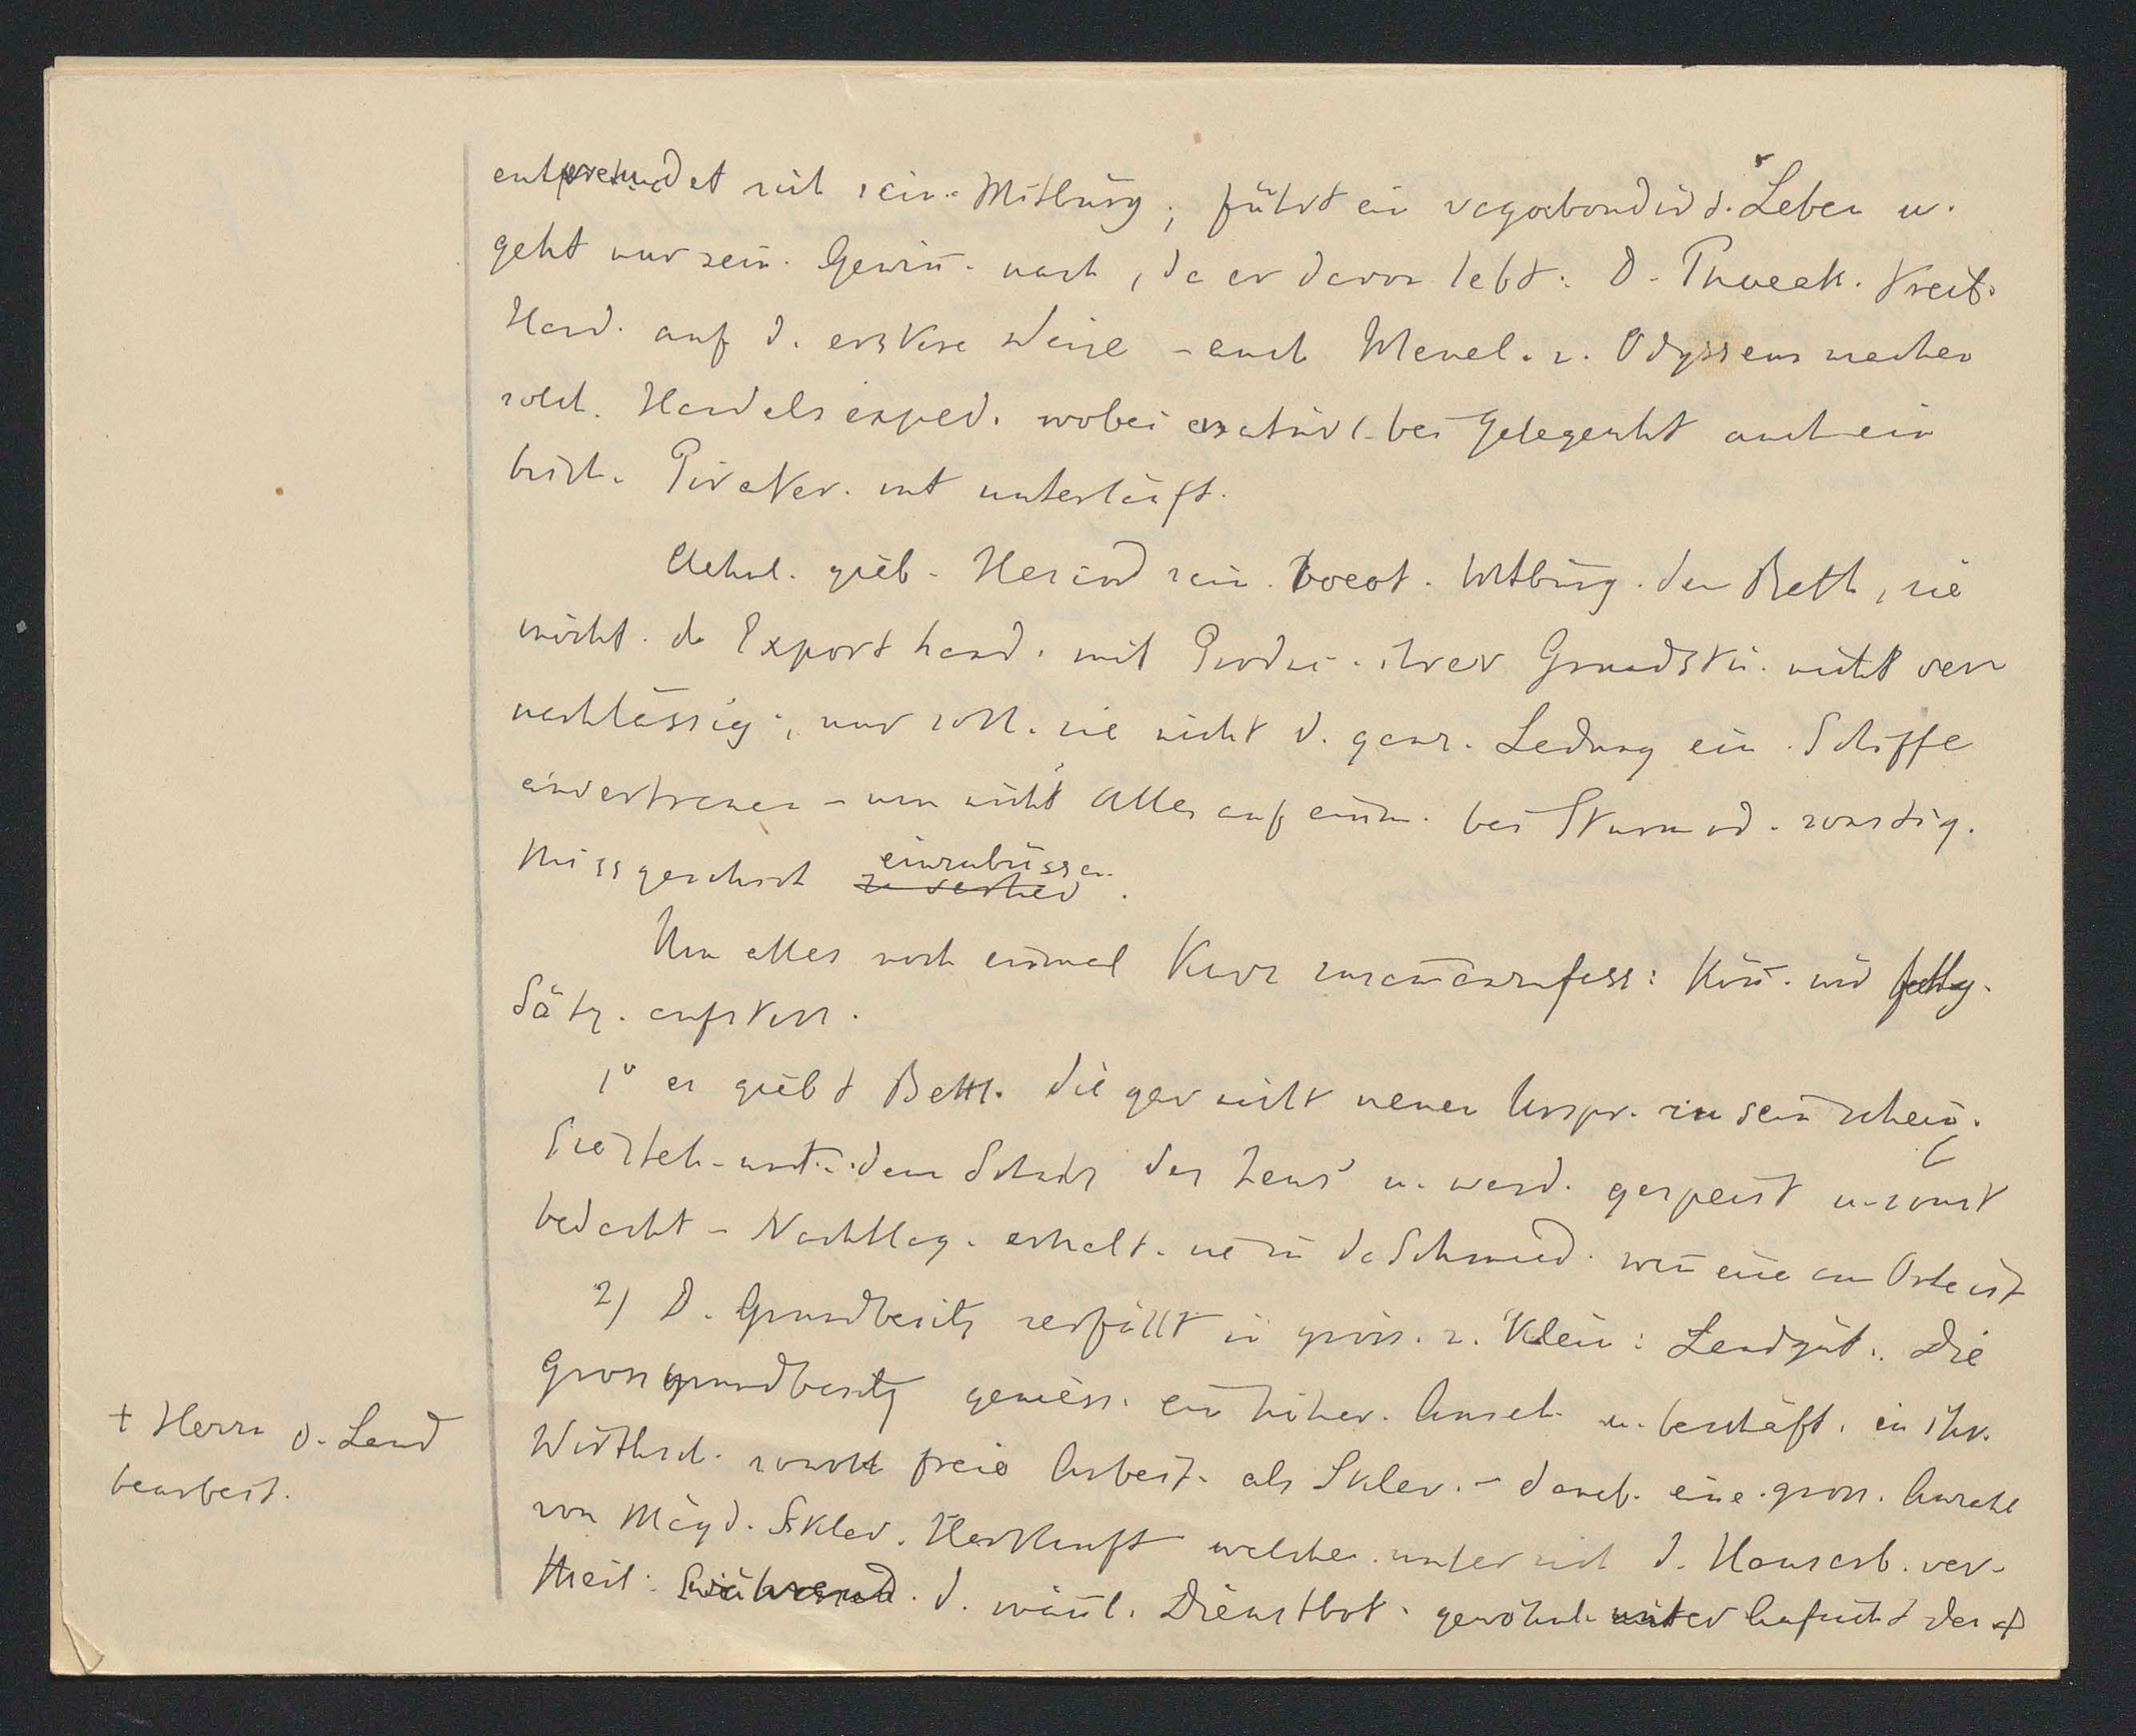 entfremdet sich sein. Mitbürg., führt ein vagabondird. Leben u.
geht nur sein. Gewin̄. nach, da er davon lebt. D. Phaeak. treib.
Hand. auf d. erstere Weise – auch Menel. u. Odysseus machen
solch. Handelsexped. wobei natürl. bei Gelegenht auch ein
bisch. Pirater. mit unterläuft.
Aehnl. gieb. Hesiod sein. boeot. Mitbürg. den Rath, sie
möcht. de Exporthand. mit Produc. ihrer Grundstü. nicht ver
nachlässig., nur soll. sie nicht d. ganz. Ladung ein. Schiffe
anvertrauen – um nicht Alles auf einm. bei Sturm od. sonstig.
Missgeschick einzubüssen.
Um alles noch einmal kurz zusam̄enzufass: kön̄. wir folg.
Sätz. aufstell.
1° es giebt Bettl. die gar nicht neuen Urspr. zu sein schein.
Sie steh. unt. dem Schutz des Zeus u. werd. gespeist u. sonst
bedacht – Nachtlag. erhalt. sie in de Schmied. wen̄ eine am Orte ist
2) D. Grundbesitz zerfällt in gross. u. klein: Landgüt.. Die
Grossgrundbesitz geniess. ein höher. Anseh. u. beschäft. in ihr.
Wirthsch. sowohl freie Arbeit. als Sklav. – daneb. eine gross. Anzahl
von Mägd. Sklav. Herkunft welche unter sich d. Hausarb. ver-
theil. während. d. män̄l. Dienstbot. gewöhnl. unter Aufsicht des +
+ Herrn d. Land
bearbeit.